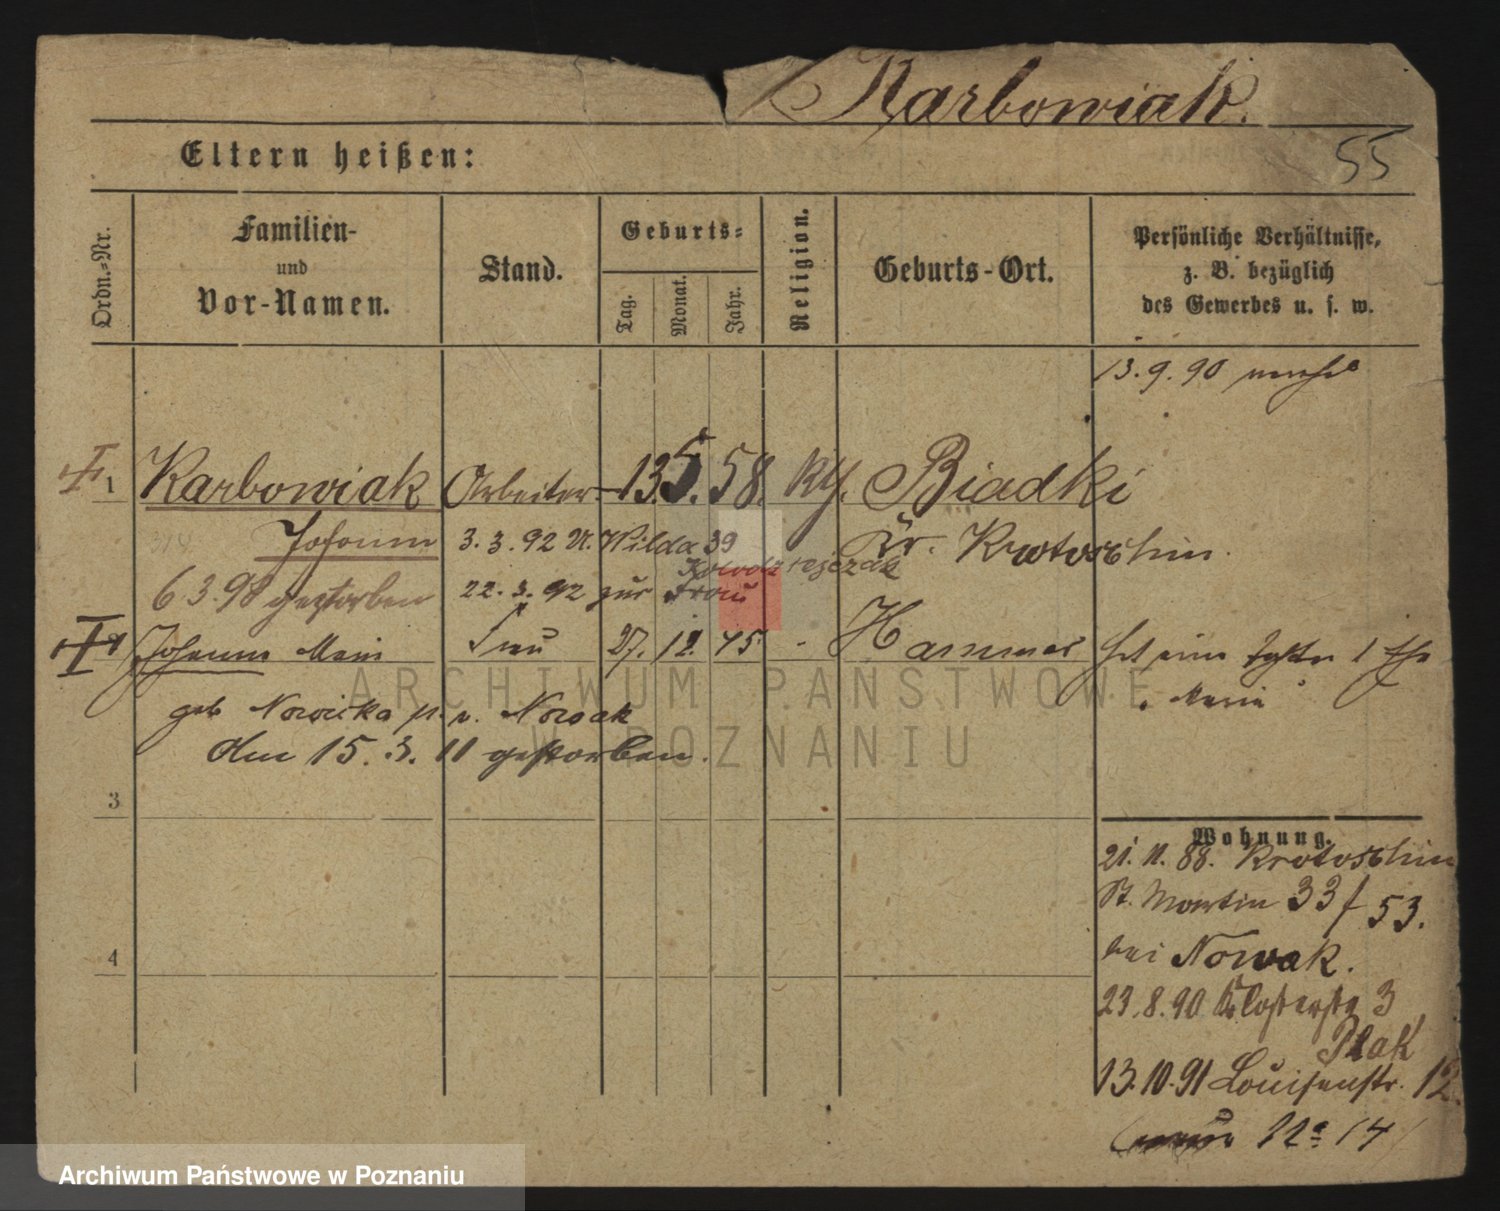 Karbowiak.
Eltern heißen:
55
Ordn.=Nr.
Familien-
und
Vor-Namen.
Stand.
Geburts=
Tag.
Monat.
Jahr.
Religion.
Geburts-Ort.
Persönliche Verhältnisse,
z. B. bezüglich
des Gewerbes u. s. w.
13.9.90
1 Karbowiak Arbeiter 13. 5. 58. Biadki
Johann 3.3.92 Wilda 39 Kr. Krotoschin.
6.3.98 gestorben 22.3.92 zur Frau
Johanna Frau 27. 12. 45. Hammer
geb Nowicka Nowak
den 15. 3. 11 gestorben.
3
4
Wohnung.
21. 11. 88. Krotoschin
St. Martin 33 53.
bei Nowak.
23.8.90 Klosterstr 3
Ptak
13.10.91 Louisenstr. 12
14
ARCHIWUM PAŃSTWOWE
W POZNANIU
Archiwum Państwowe w Poznaniu